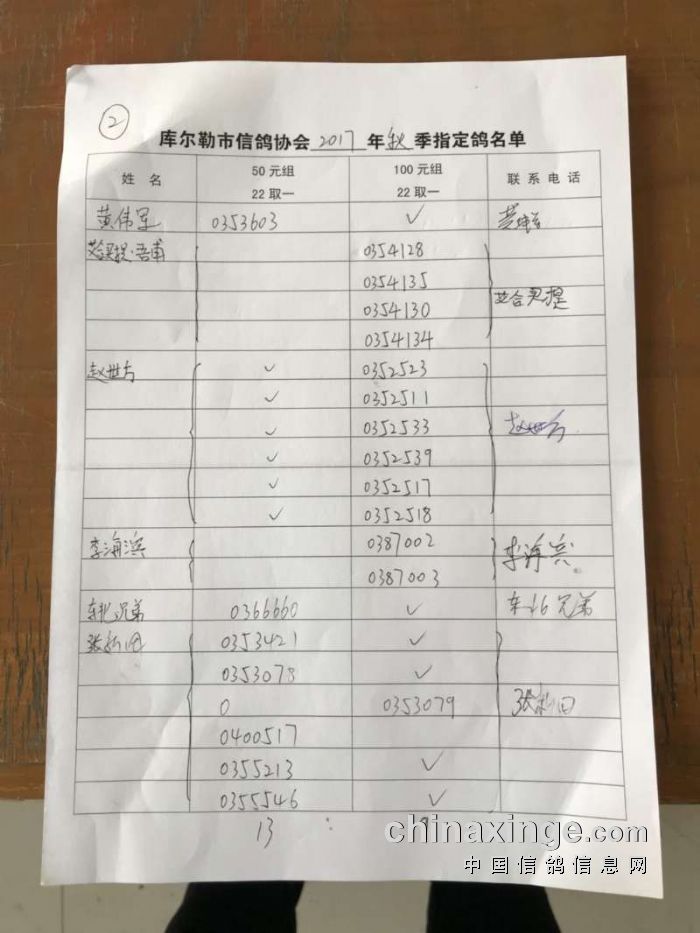 ②
库尔勒市信鸽协会 2017 年 秋 季指定鸽名单
姓 名 50 元组 22 取一 100 元组 22 取一 联 系 电 话
黄伟军 0353603 ✓
0354128
0354135
0354130
0354134
赵世方 ✓ 0352523
✓ 0352511
✓ 0352533 赵世方
✓ 0352539
✓ 0352517
✓ 0352518
李海滨 0387002
0387003
兄弟 0366660 ✓ 兄弟
0353421 ✓
0353078 ✓
0 0353079
0400517
0355213 ✓
0355546 ✓
13 :
chinaxinge.com
中国信鸽信息网